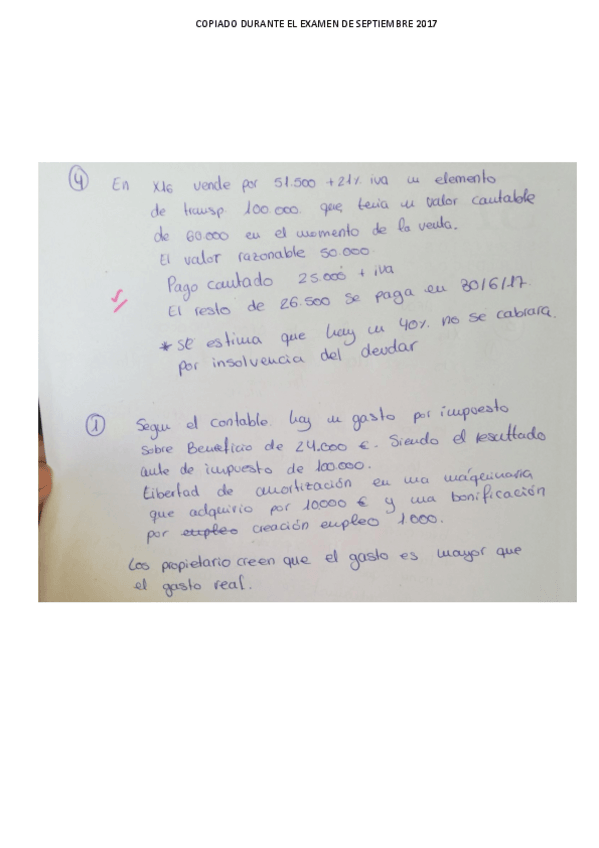 COPIADO DURANTE EL EXAMEN DE SEPTIEMBRE 2017
④ En X16 vende por 51.500 + 21% iva un elemento
de transp. 100.000. que tenia un valor cantable
de 60.000 en el momento de la venta.
El valor razonable 50.000.
Pago cantado 25.000 + iva
El resto de 26.500 se paga en 30/6/17.
* se estima que hay un 40% no se cabrara
por insolvencia del deudar
① Segun el contable. hay un gasto por impuesto
sobre Beneficio de 24.000 €. Siendo el resultado
ante de impuesto de 100.000.
Libertad de amortización en una máquinaria
que adquirio por 10000 € y una bonificación
por empleo creación empleo 1000.
Los propietario creen que el gasto es mayor que
el gasto real.